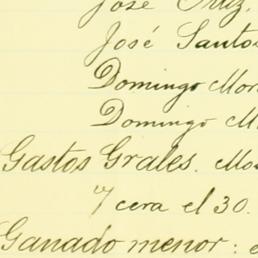 José Ortiz.
José Santos
Domingo Mor
Domingo M
Gastos Grales. Mos
7 cera el 30.
Ganado menor: e